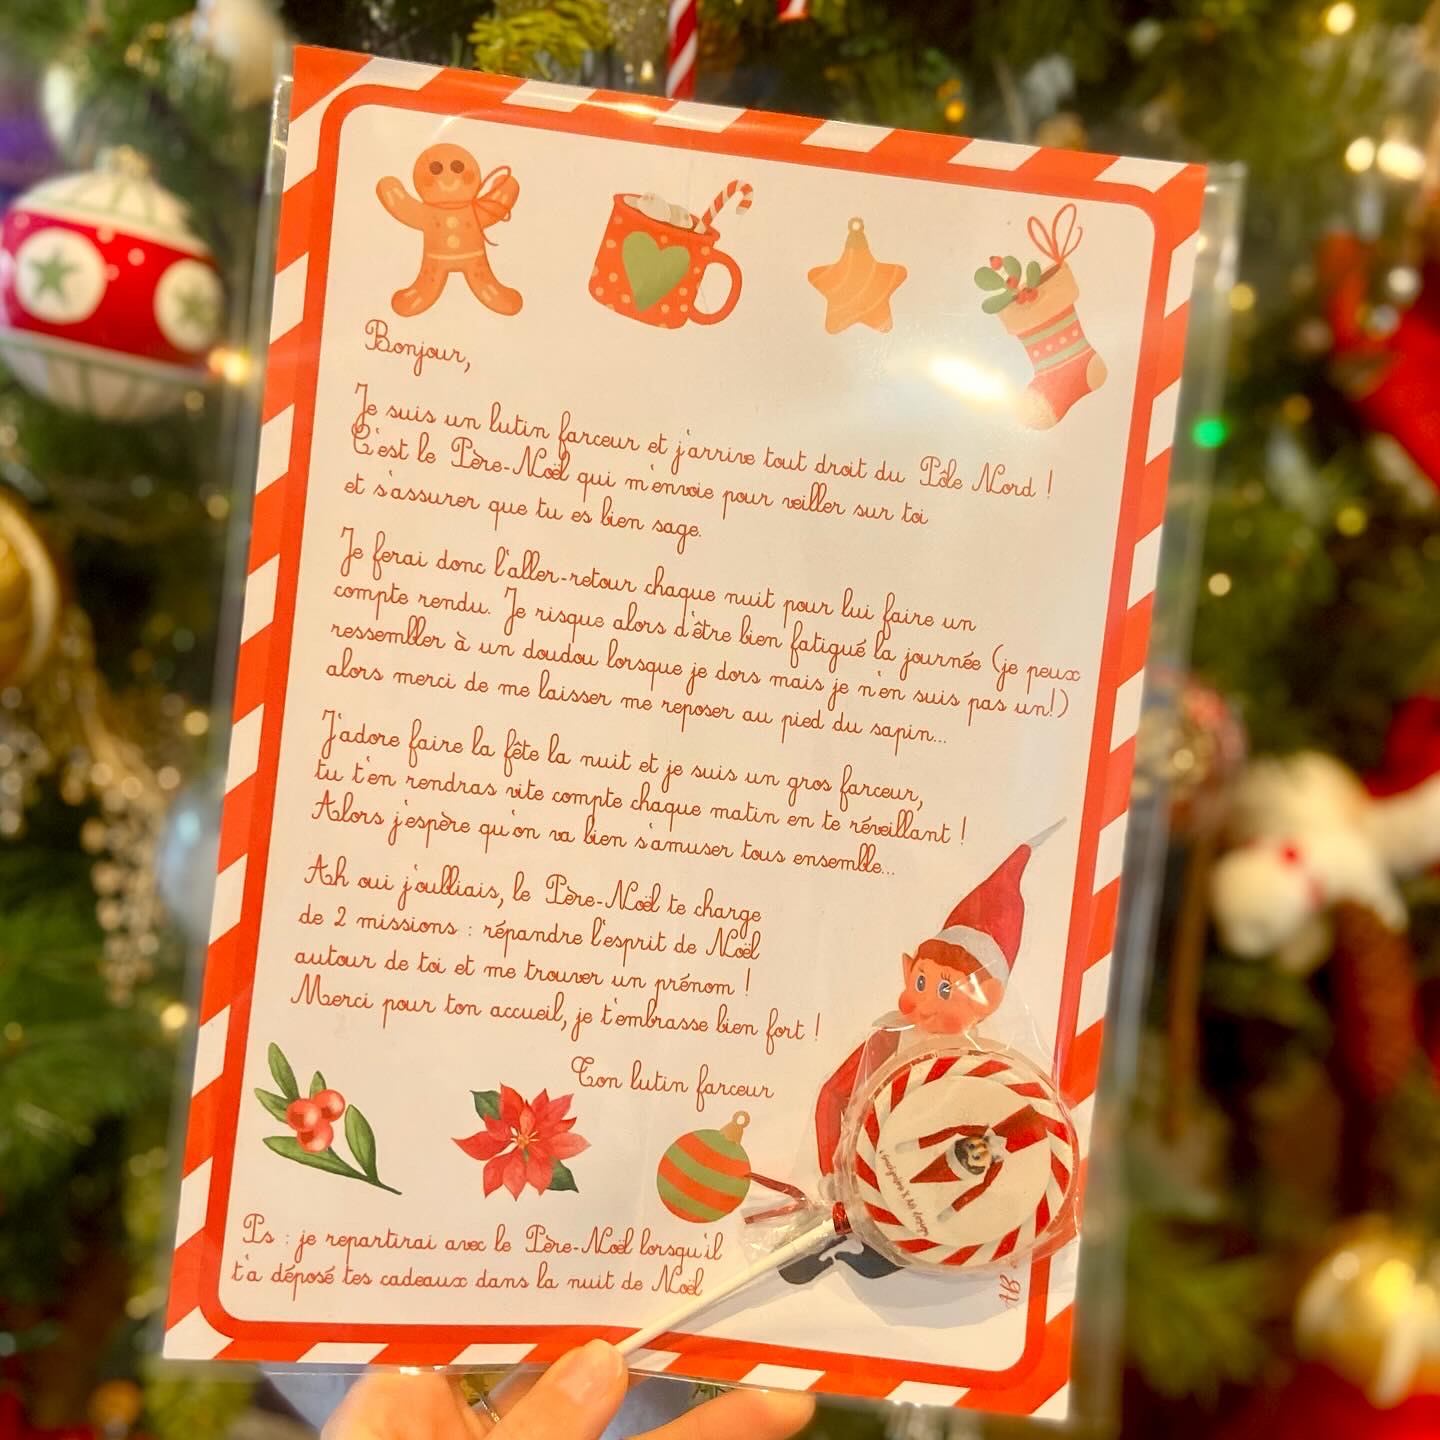 Bonjour,
Je suis un lutin farceur et j'arrive tout droit du Pôle Nord !
C'est le Père-Noël qui m'envoie pour veiller sur toi
et s'assurer que tu es bien sage.
Je ferai donc l'aller-retour chaque nuit pour lui faire un
compte rendu. Je risque alors d'être bien fatigué la journée (je peux
ressembler à un doudou lorsque je dors mais je n'en suis pas un!)
alors merci de me laisser me reposer au pied du sapin...
J'adore faire la fête la nuit et je suis un gros farceur,
tu t'en rendras vite compte chaque matin en te réveillant !
Alors j'espère qu'on va bien s'amuser tous ensemble...
Ah oui j'oubliais, le Père-Noël te charge
de 2 missions : répandre l'esprit de Noël
autour de toi et me trouver un prénom !
Merci pour ton accueil, je t'embrasse bien fort !
Ton lutin farceur
Ps : je repartirai avec le Père-Noël lorsqu'il
t'a déposé tes cadeaux dans la nuit de Noël
AB